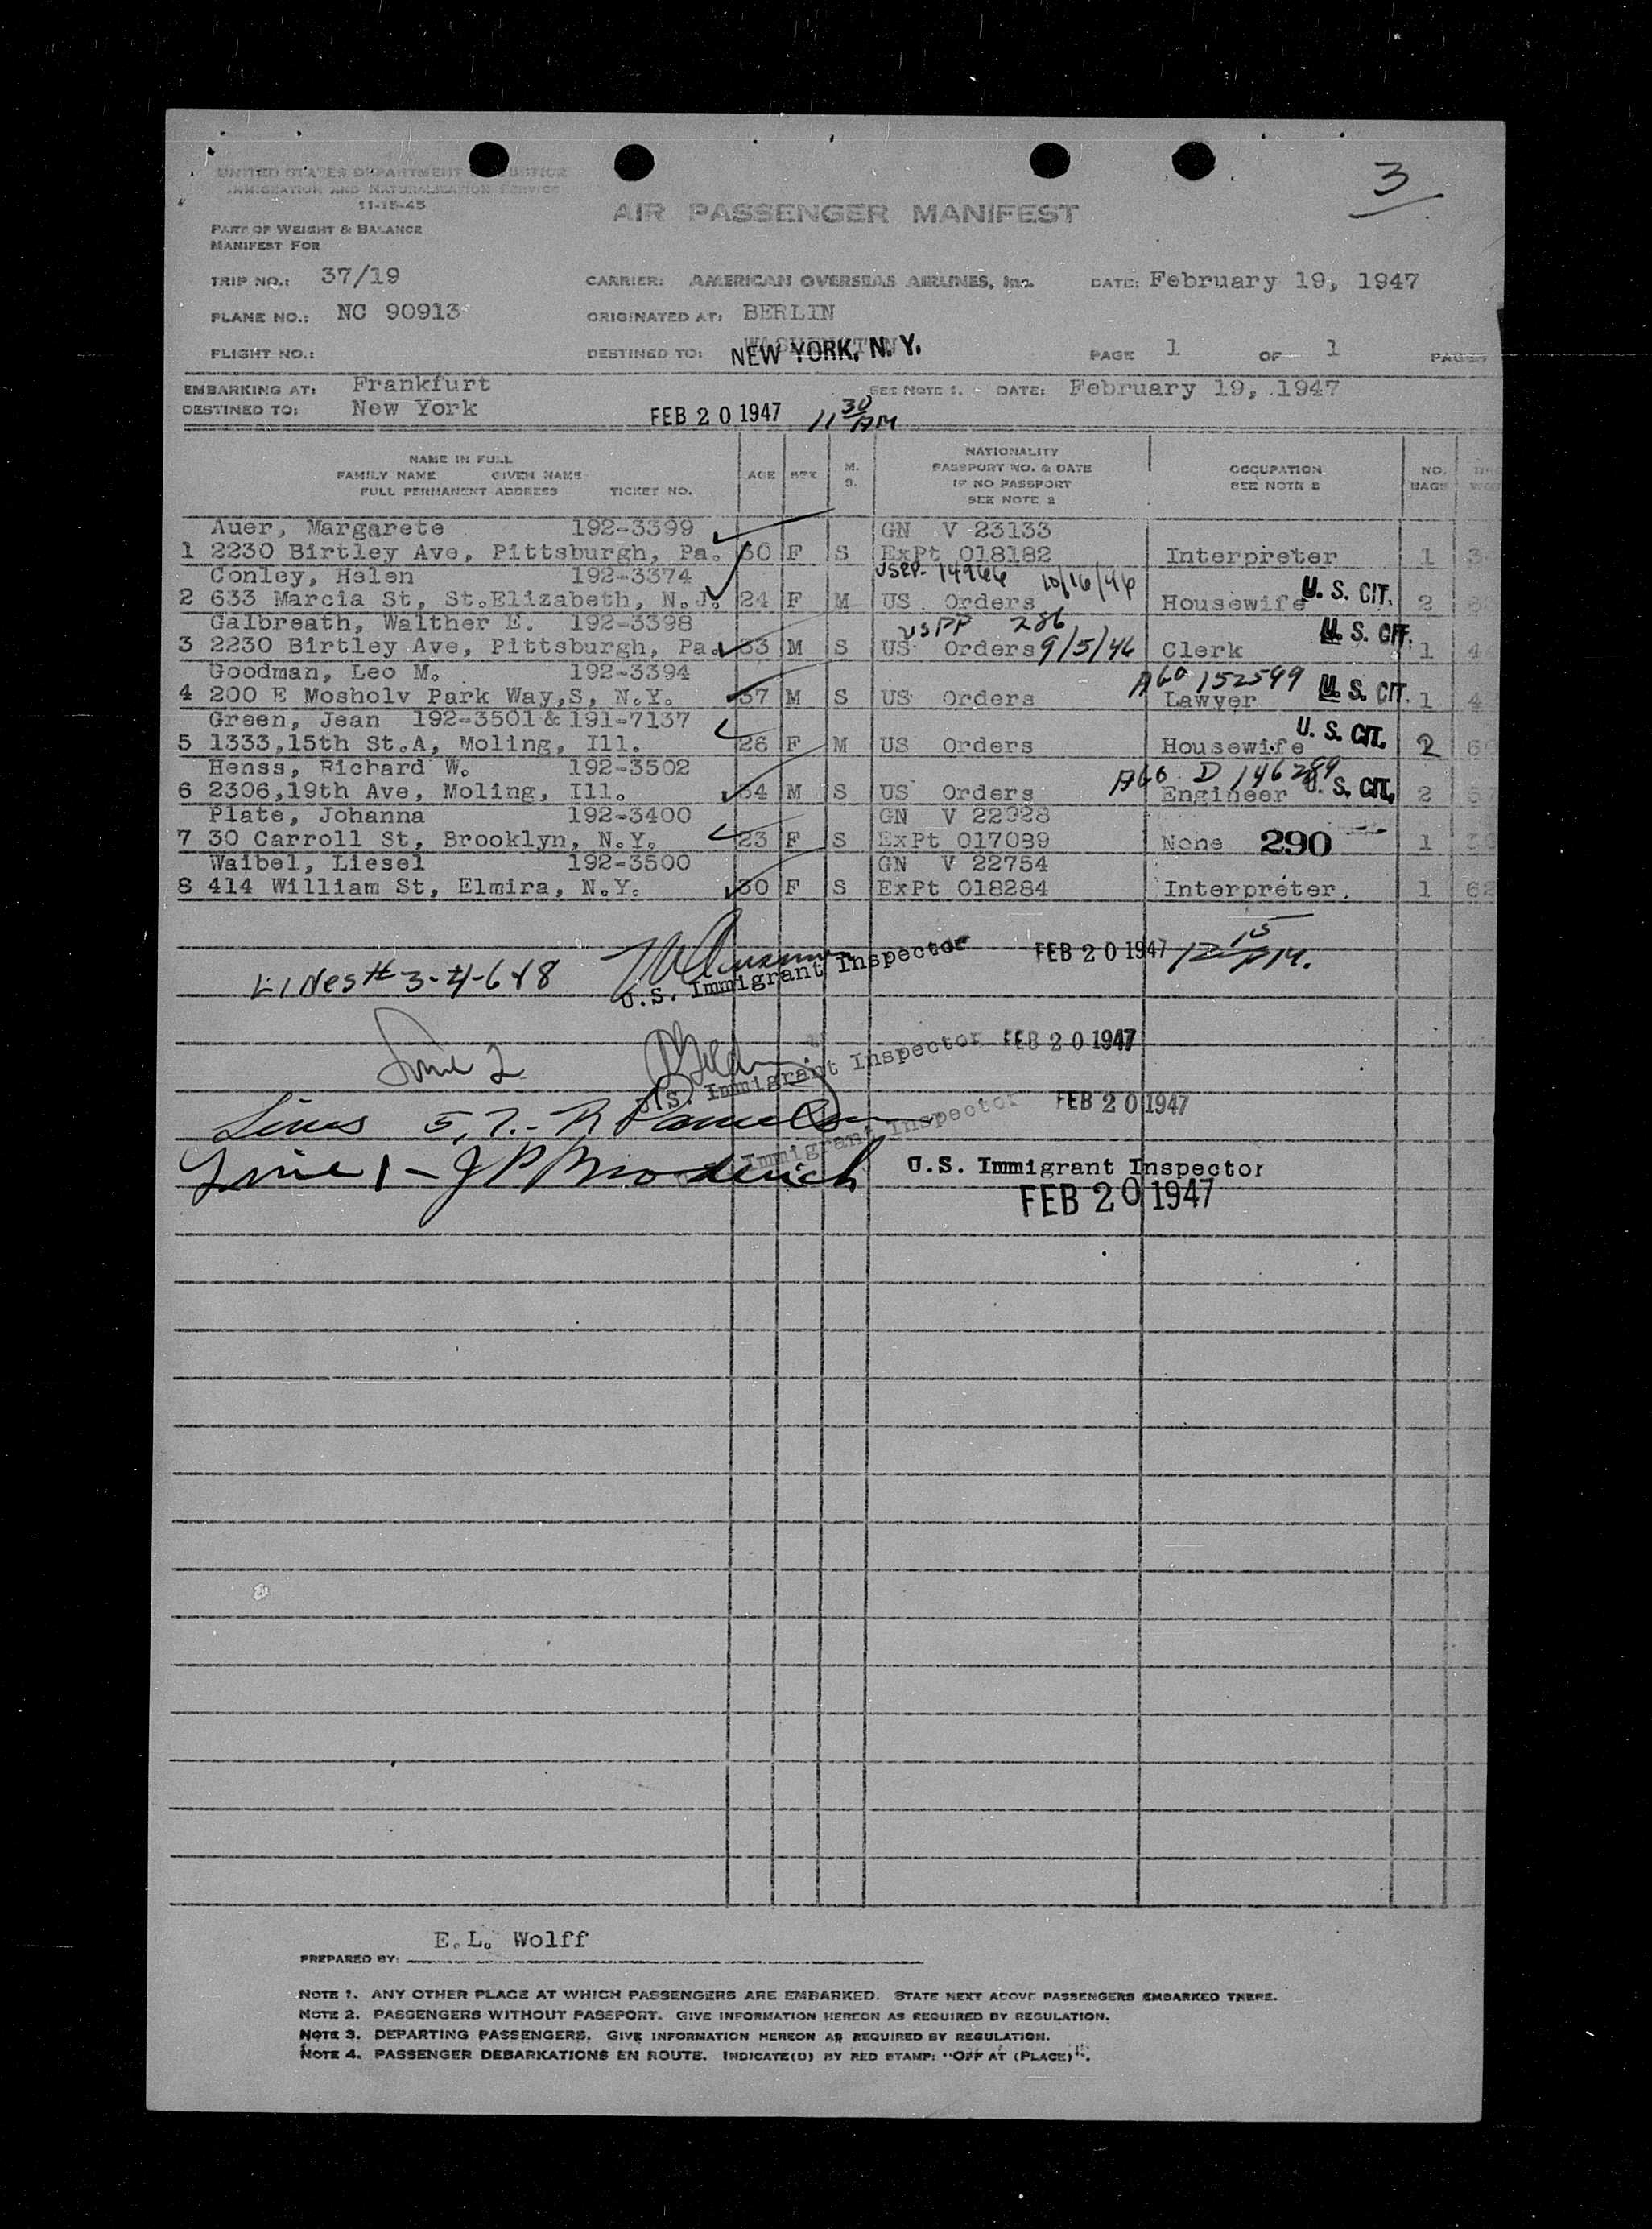 3
UNITED STATES DEPARTMENT JUSTICE
IMMIGRATION AND NATURALIZATION SERVICE
11-15-45
AIR PASSENGER MANIFEST
PART OF WEIGHT & BALANCE
MANIFEST FOR
TRIP NO.: 37/19 CARRIER: AMERICAN OVERSEAS AIRLINES, Inc. DATE: February 19, 1947
PLANE NO.: NC 90913 ORIGINATED AT: BERLIN
FLIGHT NO.: DESTINED TO: NEW YORK, N. Y. PAGE 1 OF 1 PAGES
EMBARKING AT: Frankfurt SEE NOTE 1. - DATE: February 19, 1947
DESTINED TO: New York FEB 20 1947 11 30 AM
NAME IN FULL
FAMILY NAME GIVEN NAME
FULL PERMANENT ADDRESS TICKET NO.
AGE SEX M. S.
NATIONALITY
PASSPORT NO. & DATE
IF NO PASSPORT
SEE NOTE 2
OCCUPATION
SEE NOTE 3
NO. BAGS
Auer, Margarete 192-3399 GN V 23133
1 2230 Birtley Ave, Pittsburgh, Pa. 30 F S ExPt 018182 Interpreter 1
Conley, Helen 192-3374 USPP- 14966 10/16/46
2 633 Marcia St, St.Elizabeth, N.J. 24 F M US Orders Housewife U. S. CIT. 2
Galbreath, Walther E. 192-3398 USPP 286
3 2230 Birtley Ave, Pittsburgh, Pa. 33 M S US Orders 9/5/46 Clerk U. S. CIT. 1
Goodman, Leo M. 192-3394 AGO 152599
4 200 E Mosholv Park Way,S, N.Y. 37 M S US Orders Lawyer U. S. CIT. 1
Green, Jean 192-3501 & 191-7137
5 1333,15th St.A, Moling, Ill. 26 F M US Orders Housewife U. S. CIT. 2
Henss, Richard W. 192-3502 AGO D 146289
6 2306,19th Ave, Moling, Ill. 34 M S US Orders Engineer U. S. CIT. 2
Plate, Johanna 192-3400 GN V 22928
7 30 Carroll St, Brooklyn, N.Y. 23 F S ExPt 017089 None 290 1
Waibel, Liesel 192-3500 GN V 22754
8 414 William St, Elmira, N.Y. 30 F S ExPt 018284 Interpreter. 1 62
Lines# 3-4-6 & 8 U.S. Immigrant Inspector FEB 20 1947 12 15 P.M.
Line 2 U.S. Immigrant Inspector FEB 20 1947
Lines 5,7.- Immigrant Inspector FEB 20 1947
Line 1 - J P Broderick U.S. Immigrant Inspector
FEB 20 1947
E.L. Wolff
PREPARED BY:
NOTE 1. ANY OTHER PLACE AT WHICH PASSENGERS ARE EMBARKED. STATE NEXT ABOVE PASSENGERS EMBARKED THERE.
NOTE 2. PASSENGERS WITHOUT PASSPORT. GIVE INFORMATION HEREON AS REQUIRED BY REGULATION.
NOTE 3. DEPARTING PASSENGERS. GIVE INFORMATION HEREON AS REQUIRED BY REGULATION.
NOTE 4. PASSENGER DEBARKATIONS EN ROUTE. INDICATE(D) BY RED STAMP: "OFF AT (PLACE)".